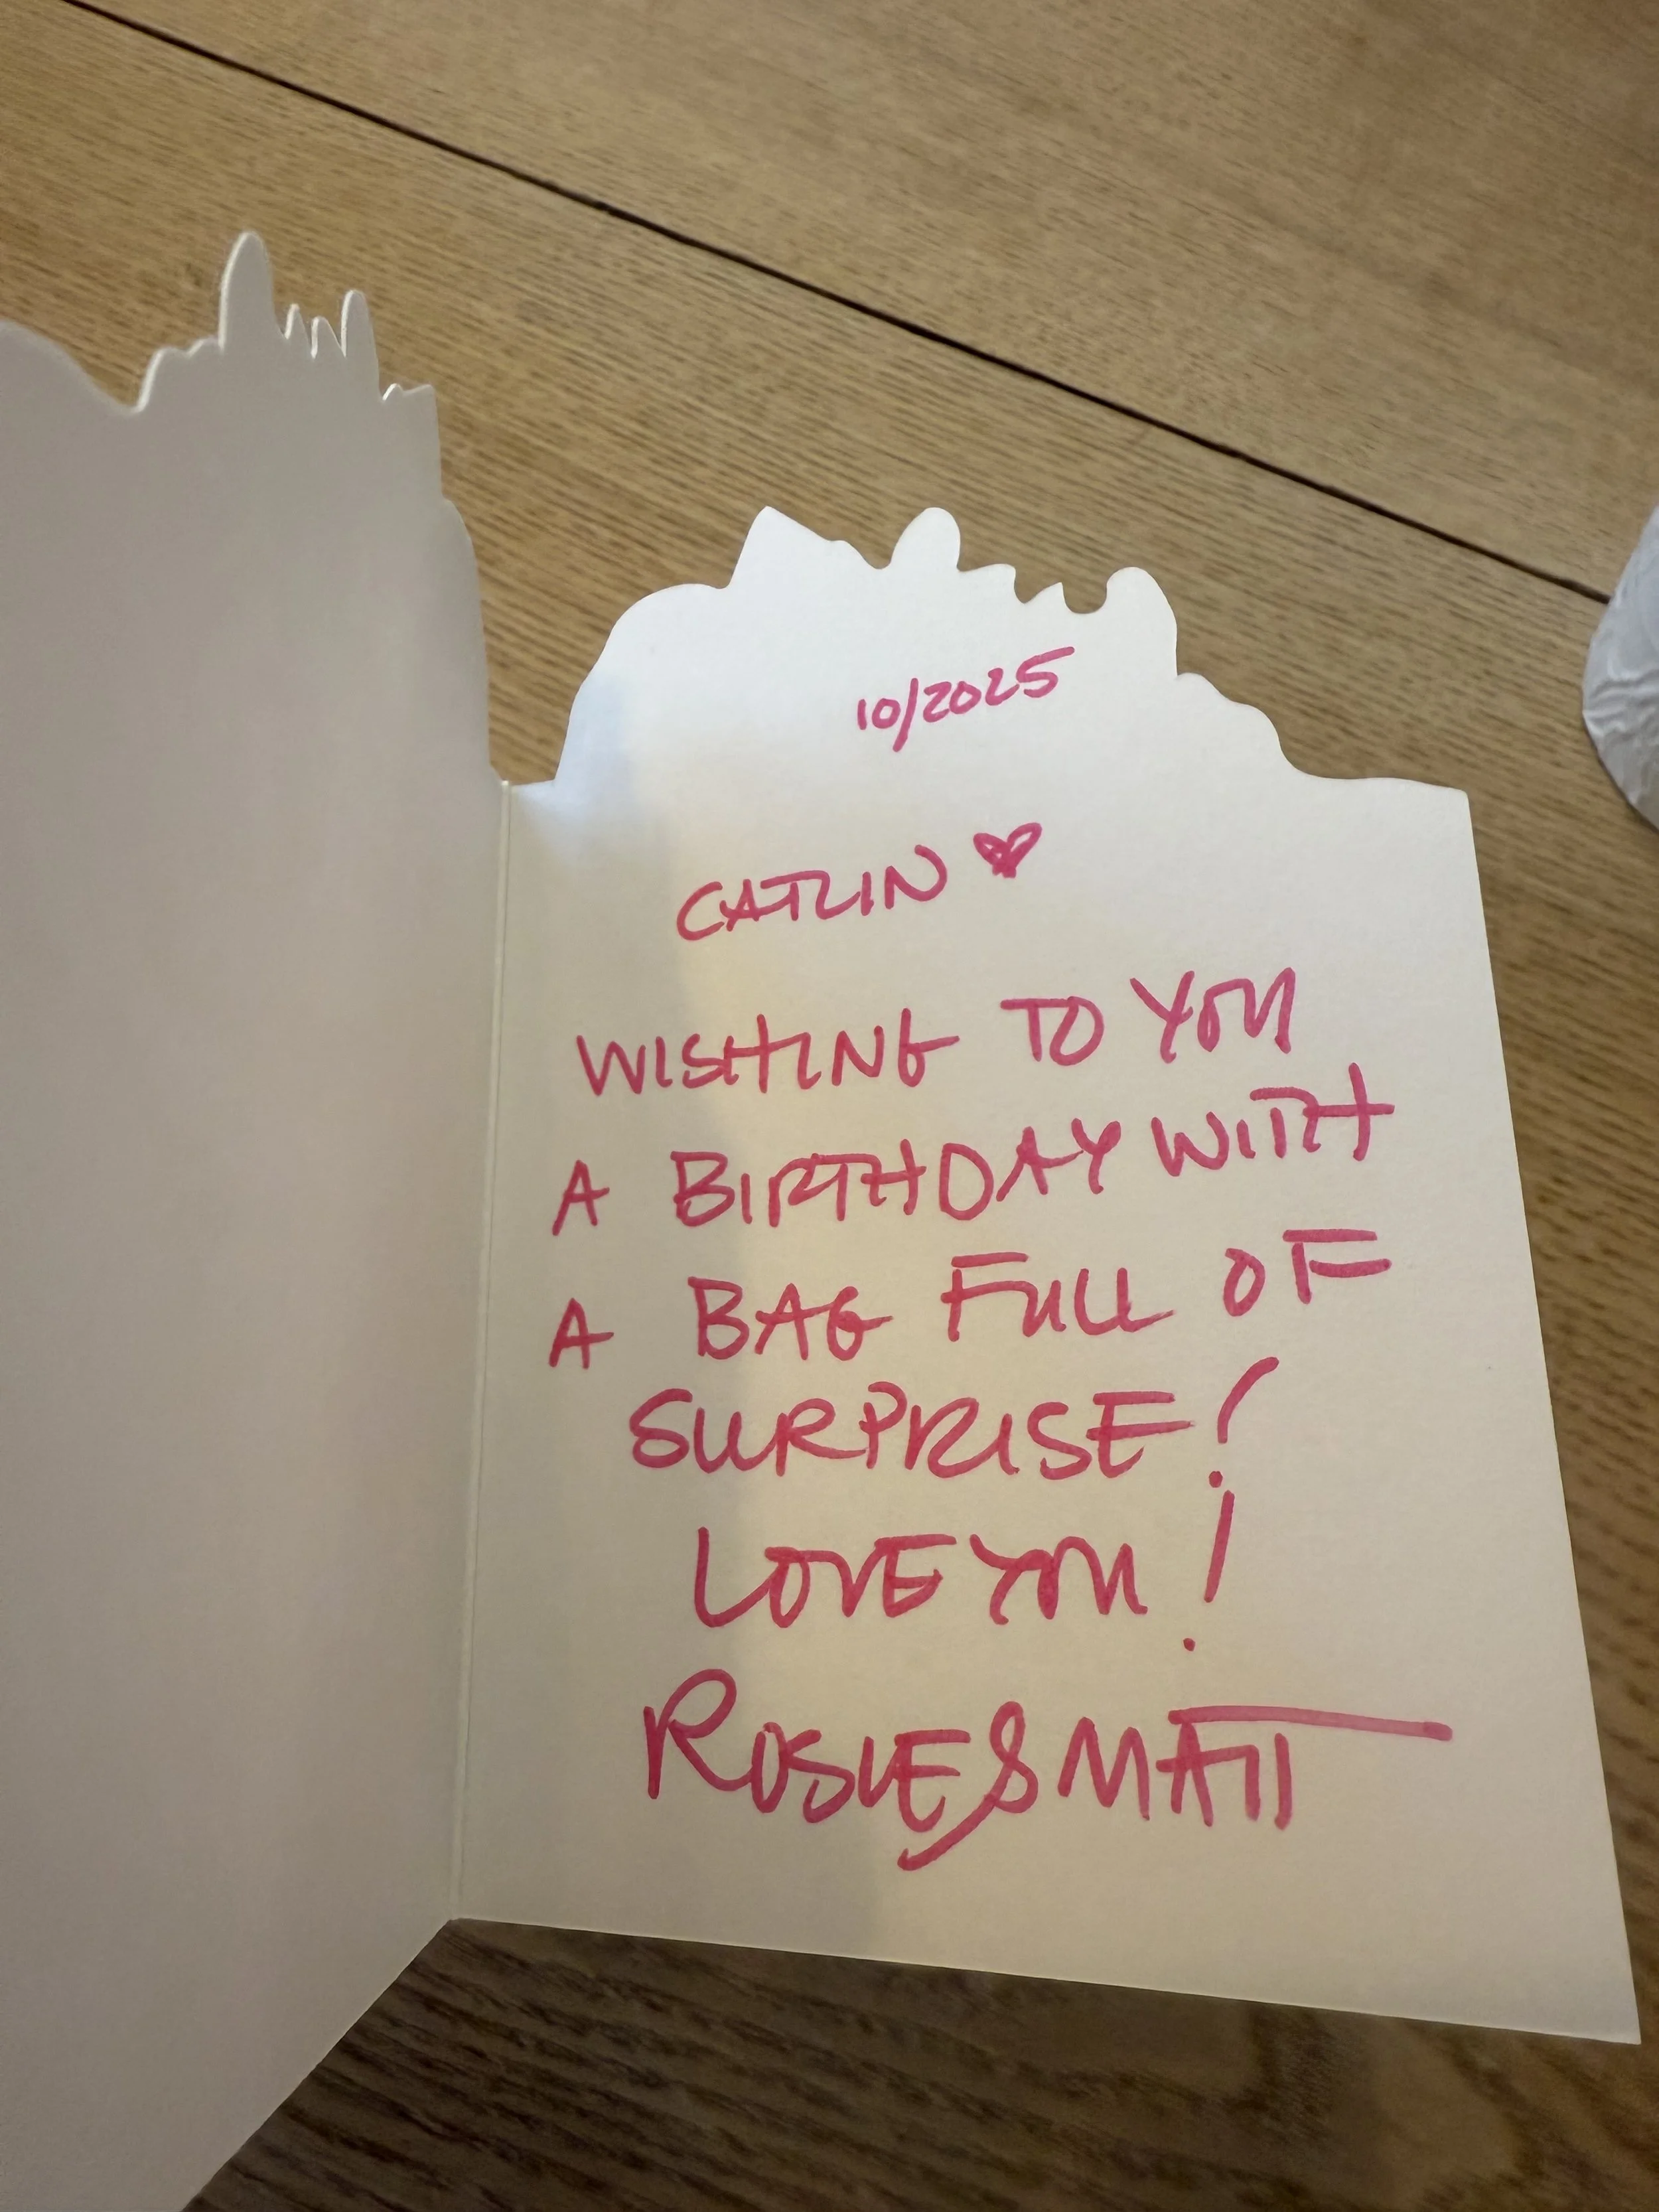 10/2025
CATLIN ♥
WISHING TO YOU
A BIRTHDAY WITH
A BAG FULL OF
SURPRISE!
LOVE YOU!
ROSIE & MATT